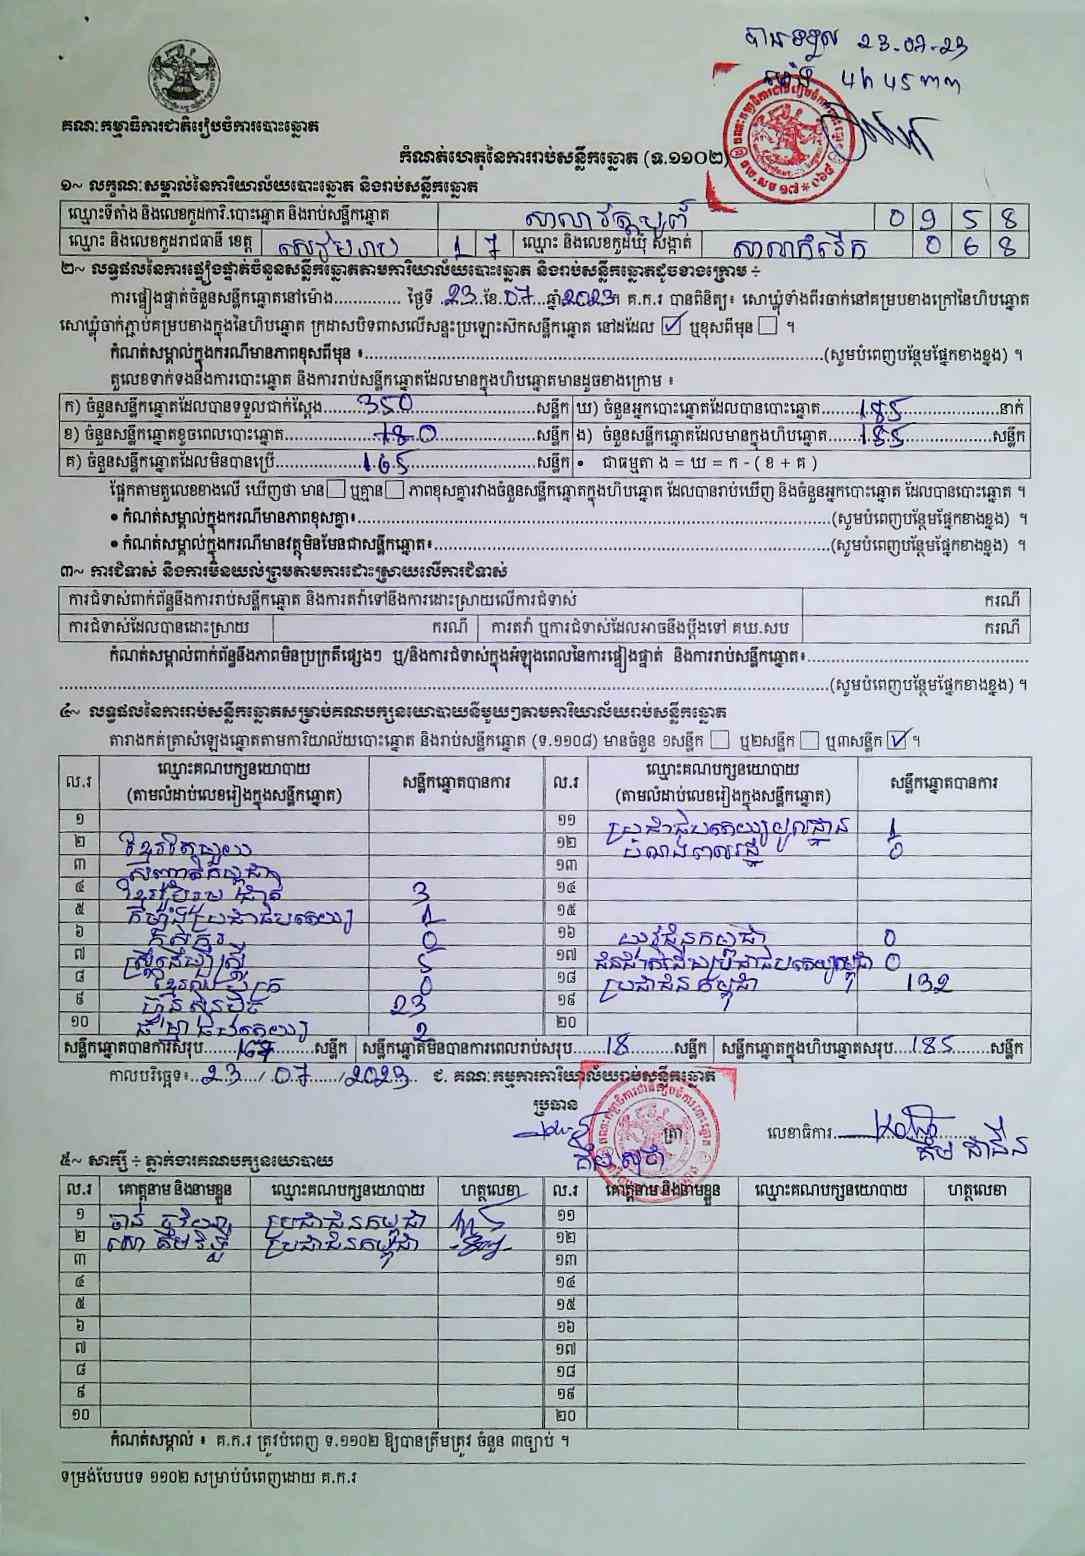 បានទទួល 23-07-23
ម៉ោង 4h 45
គណៈកម្មាធិការជាតិរៀបចំការបោះឆ្នោត
កំណត់ហេតុនៃការរាប់សន្លឹកឆ្នោត (ទ.១១០២)
១~ លក្ខណៈសម្គាល់នៃការិយាល័យបោះឆ្នោត និងរាប់សន្លឹកឆ្នោត
ឈ្មោះទីតាំង និងលេខកូដការិ.បោះឆ្នោត និងរាប់សន្លឹកឆ្នោត សាលាវត្តបូព៌ 0 9 5 8
ឈ្មោះ និងលេខកូដរាជធានី ខេត្ត សៀមរាប 1 7 ឈ្មោះ និងលេខកូដឃុំ សង្កាត់ សាលាកំរើក 0 6 8
២~ លទ្ធផលនៃការផ្ទៀងផ្ទាត់ចំនួនសន្លឹកឆ្នោតតាមការិយាល័យបោះឆ្នោត និងរាប់សន្លឹកឆ្នោតដូចខាងក្រោម ÷
ការផ្ទៀងផ្ទាត់ចំនួនសន្លឹកឆ្នោតនៅម៉ោង.............. ថ្ងៃទី 23 ខែ 07 ឆ្នាំ 2023។ គ.ក.រ បានពិនិត្យ៖ សោឃ្លុំទាំងពីរចាក់នៅគម្របខាងក្រៅនៃហិបឆ្នោត
សោឃ្លុំចាក់ភ្ជាប់គម្របខាងក្នុងនៃហិបឆ្នោត ក្រដាសបិទពាសលើសន្ទះប្រឡោះស៊កសន្លឹកឆ្នោត នៅដដែល ☑ ឬខុសពីមុន ☐ ។
កំណត់សម្គាល់ក្នុងករណីមានភាពខុសពីមុន ៖...............(សូមបំពេញបន្ថែមផ្នែកខាងខ្នង) ។
តួលេខទាក់ទងនឹងការបោះឆ្នោត និងការរាប់សន្លឹកឆ្នោតដែលមានក្នុងហិបឆ្នោតមានដូចខាងក្រោម ៖
ក) ចំនួនសន្លឹកឆ្នោតដែលបានទទួលជាក់ស្តែង........350........សន្លឹក ឃ) ចំនួនអ្នកបោះឆ្នោតដែលបានបោះឆ្នោត........185........នាក់
ខ) ចំនួនសន្លឹកឆ្នោតខូចពេលបោះឆ្នោត........0........សន្លឹក ង) ចំនួនសន្លឹកឆ្នោតដែលមានក្នុងហិបឆ្នោត........185........សន្លឹក
គ) ចំនួនសន្លឹកឆ្នោតដែលមិនបានប្រើ........165........សន្លឹក • ជាធម្មតា ង = ឃ = ក - ( ខ + គ )
ផ្អែកតាមតួលេខខាងលើ ឃើញថា មាន ☐ ឬគ្មាន ☐ ភាពខុសគ្នារវាងចំនួនសន្លឹកឆ្នោតក្នុងហិបឆ្នោត ដែលបានរាប់ឃើញ និងចំនួនអ្នកបោះឆ្នោត ដែលបានបោះឆ្នោត ។
• កំណត់សម្គាល់ក្នុងករណីមានភាពខុសគ្នា៖...............(សូមបំពេញបន្ថែមផ្នែកខាងខ្នង) ។
• កំណត់សម្គាល់ក្នុងករណីមានវត្ថុមិនមែនជាសន្លឹកឆ្នោត៖...............(សូមបំពេញបន្ថែមផ្នែកខាងខ្នង) ។
៣~ ការជំទាស់ និងការមិនយល់ព្រមតាមការដោះស្រាយលើការជំទាស់
ការជំទាស់ពាក់ព័ន្ធនឹងការរាប់សន្លឹកឆ្នោត និងការតវ៉ាទៅនឹងការដោះស្រាយលើការជំទាស់ ករណី
ការជំទាស់ដែលបានដោះស្រាយ ករណី ការតវ៉ា ឬការជំទាស់ដែលអាចនឹងប្តឹងទៅ គឃ.សប ករណី
កំណត់សម្គាល់ពាក់ព័ន្ធនឹងភាពមិនប្រក្រតីផ្សេងៗ ឬ/និងការជំទាស់ក្នុងអំឡុងពេលនៃការផ្ទៀងផ្ទាត់ និងការរាប់សន្លឹកឆ្នោត៖...............
...............(សូមបំពេញបន្ថែមផ្នែកខាងខ្នង) ។
៤~ លទ្ធផលនៃការរាប់សន្លឹកឆ្នោតសម្រាប់គណបក្សនយោបាយនីមួយៗតាមការិយាល័យរាប់សន្លឹកឆ្នោត
តារាងកត់ត្រាសំឡេងឆ្នោតតាមការិយាល័យបោះឆ្នោត និងរាប់សន្លឹកឆ្នោត (ទ.១១០៨) មានចំនួន ១សន្លឹក ☐ ឬ២សន្លឹក ☐ ឬ៣សន្លឹក ☑ ។
ល.រ ឈ្មោះគណបក្សនយោបាយ (តាមលំដាប់លេខរៀងក្នុងសន្លឹកឆ្នោត) សន្លឹកឆ្នោតបានការ ល.រ ឈ្មោះគណបក្សនយោបាយ (តាមលំដាប់លេខរៀងក្នុងសន្លឹកឆ្នោត) សន្លឹកឆ្នោតបានការ
១ ១១ ប្រជាធិបតេយ្យមូលដ្ឋាន 1
២ ១២ 0
៣ ១៣
៤ 3 ១៤
៥ កម្លាំងប្រជាធិបតេយ្យ 1 ១៥
៦ កសិករ 0 ១៦ យុវជនកម្ពុជា 0
៧ 5 ១៧ 0
៨ 0 ១៨ ប្រជាជនកម្ពុជា 132
៩ ហ៊្វុនស៊ិនប៉ិច 23 ១៩
១០ ធម្មាធិបតេយ្យ 2 ២០
សន្លឹកឆ្នោតបានការសរុប....167....សន្លឹក សន្លឹកឆ្នោតមិនបានការពេលរាប់សរុប....18....សន្លឹក សន្លឹកឆ្នោតក្នុងហិបឆ្នោតសរុប....185....សន្លឹក
កាលបរិច្ឆេទ៖..23../07../2023.. ជ. គណៈកម្មការការិយាល័យរាប់សន្លឹកឆ្នោត
ប្រធាន ត្រា លេខាធិការ
៥~ សាក្សី ÷ ភ្នាក់ងារគណបក្សនយោបាយ
ល.រ គោត្តនាម និងនាមខ្លួន ឈ្មោះគណបក្សនយោបាយ ហត្ថលេខា ល.រ គោត្តនាម និងនាមខ្លួន ឈ្មោះគណបក្សនយោបាយ ហត្ថលេខា
១ ប្រជាជនកម្ពុជា ១១
២ ប្រជាជនកម្ពុជា ១២
៣ ១៣
៤ ១៤
៥ ១៥
៦ ១៦
៧ ១៧
៨ ១៨
៩ ១៩
១០ ២០
កំណត់សម្គាល់ ៖ គ.ក.រ ត្រូវបំពេញ ទ.១១០២ ឱ្យបានត្រឹមត្រូវ ចំនួន ៣ច្បាប់ ។
ទម្រង់បែបបទ ១១០២ សម្រាប់បំពេញដោយ គ.ក.រ